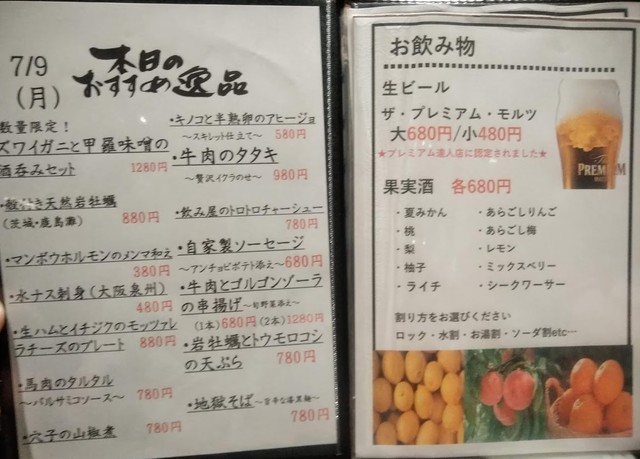 7/9
(月)
本日の
おすすめ逸品
数量限定！
ズワイガニと甲羅味噌の
酒呑みセット 1280円
・殻付き天然岩牡蠣
(茨城・鹿島灘) 880円
・マンボウホルモンのメンマ和え
380円
・水ナス刺身(大阪泉州)
480円
・生ハムとイチジクのモッツァレ
ラチーズのプレート 880円
・馬肉のタルタル
～バルサミコソース～ 780円
・穴子の山椒煮 780円
・キノコと半熟卵のアヒージョ
～スキレット仕立て～ 580円
・牛肉のタタキ
～贅沢イクラのせ～ 980円
・飲み屋のトロトロチャーシュー
780円
・自家製ソーセージ
～アンチョビポテト添え～680円
・牛肉とゴルゴンゾーラ
の串揚げ～旬野菜添え～
(1本)680円(2本)1280円
・岩牡蠣とトウモロコシ
の天ぷら 780円
・地獄そば
780円
お飲み物
生ビール
ザ・プレミアム・モルツ
大680円/小480円
★プレミアム達人店に認定されました★
果実酒 各680円
・夏みかん
・桃
・梨
・柚子
・ライチ
・あらごしりんご
・あらごし梅
・レモン
・ミックスベリー
・シークワーサー
割り方をお選びください
ロック・水割・お湯割・ソーダ割etc…
The
PREMIUM